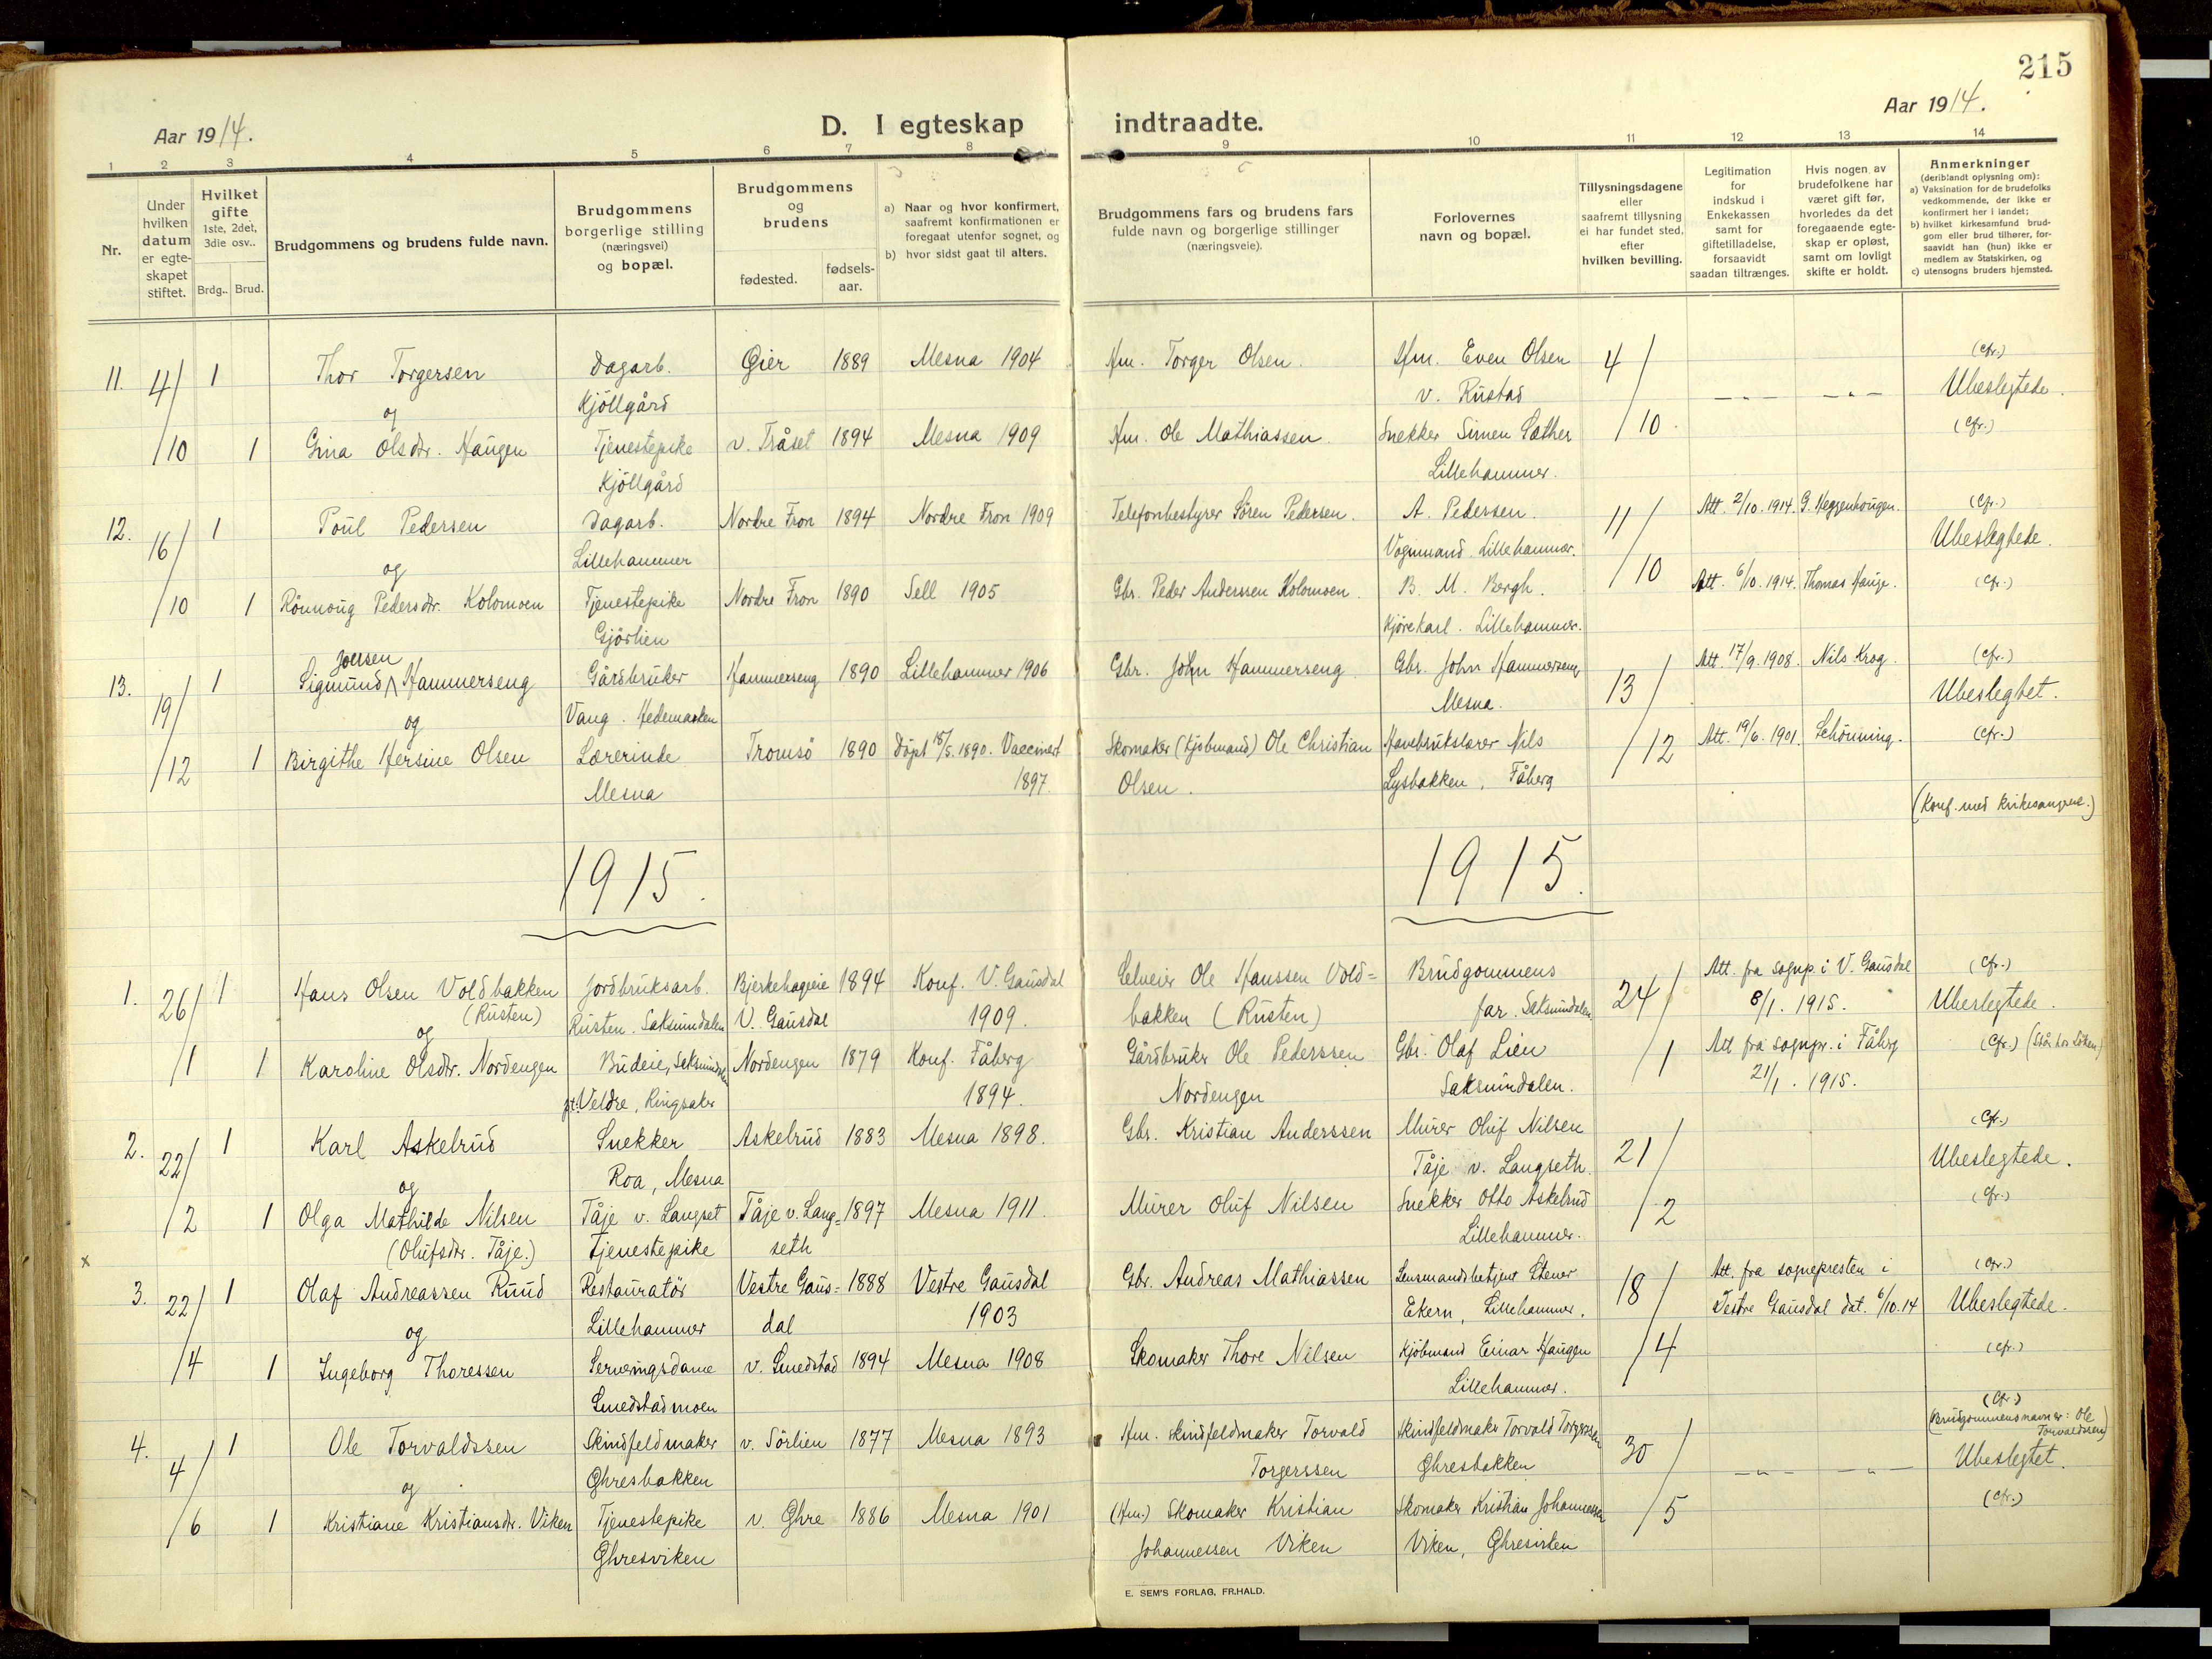 215
Aar 1914.
D. I egteskap indtraadte.
Aar 1914.
1 2 3 4 5 6 7 8 9 10 11 12 13 14
Nr.
Under hvilken datum er egteskapet stiftet.
Hvilket gifte 1ste, 2det, 3die osv..
Brdg.. Brud.
Brudgommens og brudens fulde navn.
Brudgommens borgerlige stilling (næringsvei) og bopæl.
Brudgommens og brudens
fødested.
fødsels-aar.
a) Naar og hvor konfirmert, saafremt konfirmationen er foregaat utenfor sognet, og
b) hvor sidst gaat til alters.
Brudgommens fars og brudens fars fulde navn og borgerlige stillinger (næringsveie).
Forlovernes navn og bopæl.
Tillysningsdagene eller saafremt tillysning ei har fundet sted, efter hvilken bevilling.
Legitimation for indskud i Enkekassen samt for giftetilladelse, forsaavidt saadan tiltrænges.
Hvis nogen av brudefolkene har været gift før, hvorledes da det foregaaende egteskap er opløst, samt om lovligt skifte er holdt.
Anmerkninger (deriblandt oplysning om):
a) Vaksination for de brudefolks vedkommende, der ikke er konfirmert her i landet;
b) hvilket kirkesamfund brudgom eller brud tilhører, forsaavidt han (hun) ikke er medlem av Statskirken, og
c) utensogns bruders hjemsted.
11. 4/10 1 Thor Torgersen Dagarb. Øier 1889 Mesna 1904 Hm. Torger Olsen. Hm. Even Olsen 4/10 (Cfr.)
og Kjöllgård v. Rustad — " — — " — Ubeslegtede.
1 Gina Olsdr. Haugen Tjenestepike v. Tråset 1894 Mesna 1909 Hm. Ole Mathiassen. Snekker Simen Sæther (Cfr.)
Kjöllgård Lillehammer.
12. 16/10 1 Poul Pedersen Dagarb. Nordre Fron 1894 Nordre Fron 1909 Telefonbestyrer Sören Pedersen. A. Pedersen. 11/10 Att. 2/10. 1914. G. Heggenhougen. (Cfr.)
og Lillehammer Vognmand. Lillehammer. Ubeslegtede.
1 Rönnoug Pedersdr. Kolomoen Tjenestepike Nordre Fron 1890 Sell 1905 Gbr. Peder Anderssen Kolomoen. B. M. Bergh. Att. 6/10. 1914. Thomas Hauge. (Cfr.)
Gjörlien Kjörekarl. Lillehammer.
13. 19/12 1 Sigmund Joensen Hammerseng Gårdbruker Hammerseng 1890 Lillehammer 1906 Gbr. John Hammerseng Gbr. John Hammerseng 13/12 Att. 17/9. 1908. Nils Krog. (Cfr.)
og Vang. Hedemarken Mesna. Ubeslegtet.
1 Birgithe Hersine Olsen Lærerinde Tromsö 1890 Döpt 18/5. 1890. Vaccinert Skomaker (Kjöbmand) Ole Christian Havebrukslærer Nils Att. 19/6. 1901. Schönning. (Cfr.)
Mesna 1897. Olsen. Lysbakken, Fåberg
(Konf. med kirkesangeren.)
1915. 1915.
1. 26/1 1 Hans Olsen Voldbakken Jordbruksarb. Bjerkehageie 1894 Konf. V. Gausdal Selveier Ole Hanssen Vold= Brudgommens 24/1 Att. fra sognp. i V. Gausdal (Cfr.)
(Rusten) Rusten. Saksumdalen V. Gausdal 1909. bakken (Rusten) far. Saksumdalen 8/1. 1915. Ubeslegtede.
og
1 Karoline Olsdr. Nordengen Budeie, Saksumdalen Nordengen 1879 Konf. Fåberg Gårdbruker Ole Pederssen Gbr. Olaf Lien Att. fra sognpr. i Fåberg (Cfr.)
pt. Veldre, Ringsaker 1894. Nordengen Saksumdalen. 21/1. 1915.
2. 22/2 1 Karl Askelrud Snekker Askelrud 1883 Mesna 1898. Gbr. Kristian Anderssen Murer Oluf Nilsen 21/2 (Cfr.)
og Roa, Mesna Tåje v. Langseth. Ubeslegtede.
1 Olga Mathilde Nilsen Tåje v. Langset Tåje v. Lang= 1897 Mesna 1911. Murer Oluf Nilsen Snekker Otto Askelrud (Cfr.)
x (Olufsdr. Tåje.) Tjenestepike seth Lillehammer.
3. 22/4 1 Olaf Andreassen Ruud Restauratör Vestre Gaus= 1888 Vestre Gausdal Gbr. Andreas Mathiassen Lensmandsbetjent Stener 18/4 Att. fra sognepresten i (Cfr.)
og Lillehammer dal 1903 Ekern, Lillehammer. Vestre Gausdal dat. 6/10.14 Ubeslegtede.
1 Ingeborg Thoressen Serveringsdame v. Smedstad 1894 Mesna 1908 Skomaker Thore Nilsen Kjöbmand Einar Haugen (Cfr.)
Smedstadmoen Lillehammer.
4. 4/6 1 Ole Torvaldssen Skindfeldmaker v. Sörlien 1877 Mesna 1893 Hm. Skindfeldmaker Torvald Skindfeldmaker Torvald Torgerssen 30/5 (Cfr.) (Brudgommens navn er: Ole Torvaldssen)
og Ghresbakken Torgerssen Ghresbakken — " — — " — Ubeslegtet.
1 Kristiane Kristiansdr. Viken Tjenestepike v. Ghre 1886 Mesna 1901 (Hm.) Skomaker Kristian Skomaker Kristian Johannessen (Cfr.)
Ghresviken Johannessen Viken Viken, Ghresviken
E. SEM'S FORLAG, FR.HALD.